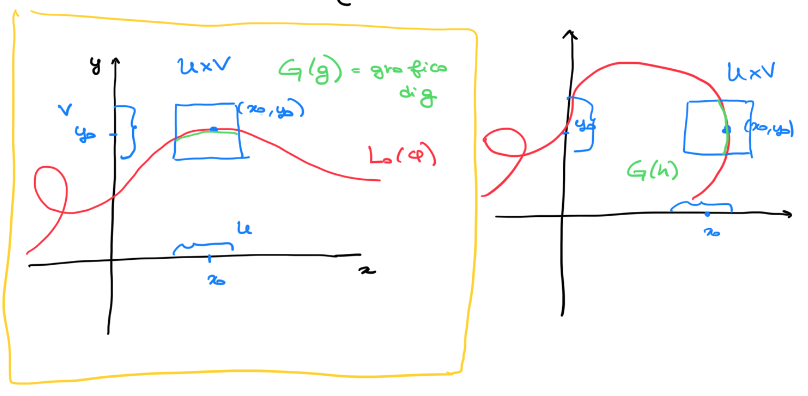 y
U×V
G(g) = grafico
di g
V
y₀
(x₀, y₀)
L₀(φ)
U
x₀
x
U×V
y₀
(x₀, y₀)
G(h)
x₀